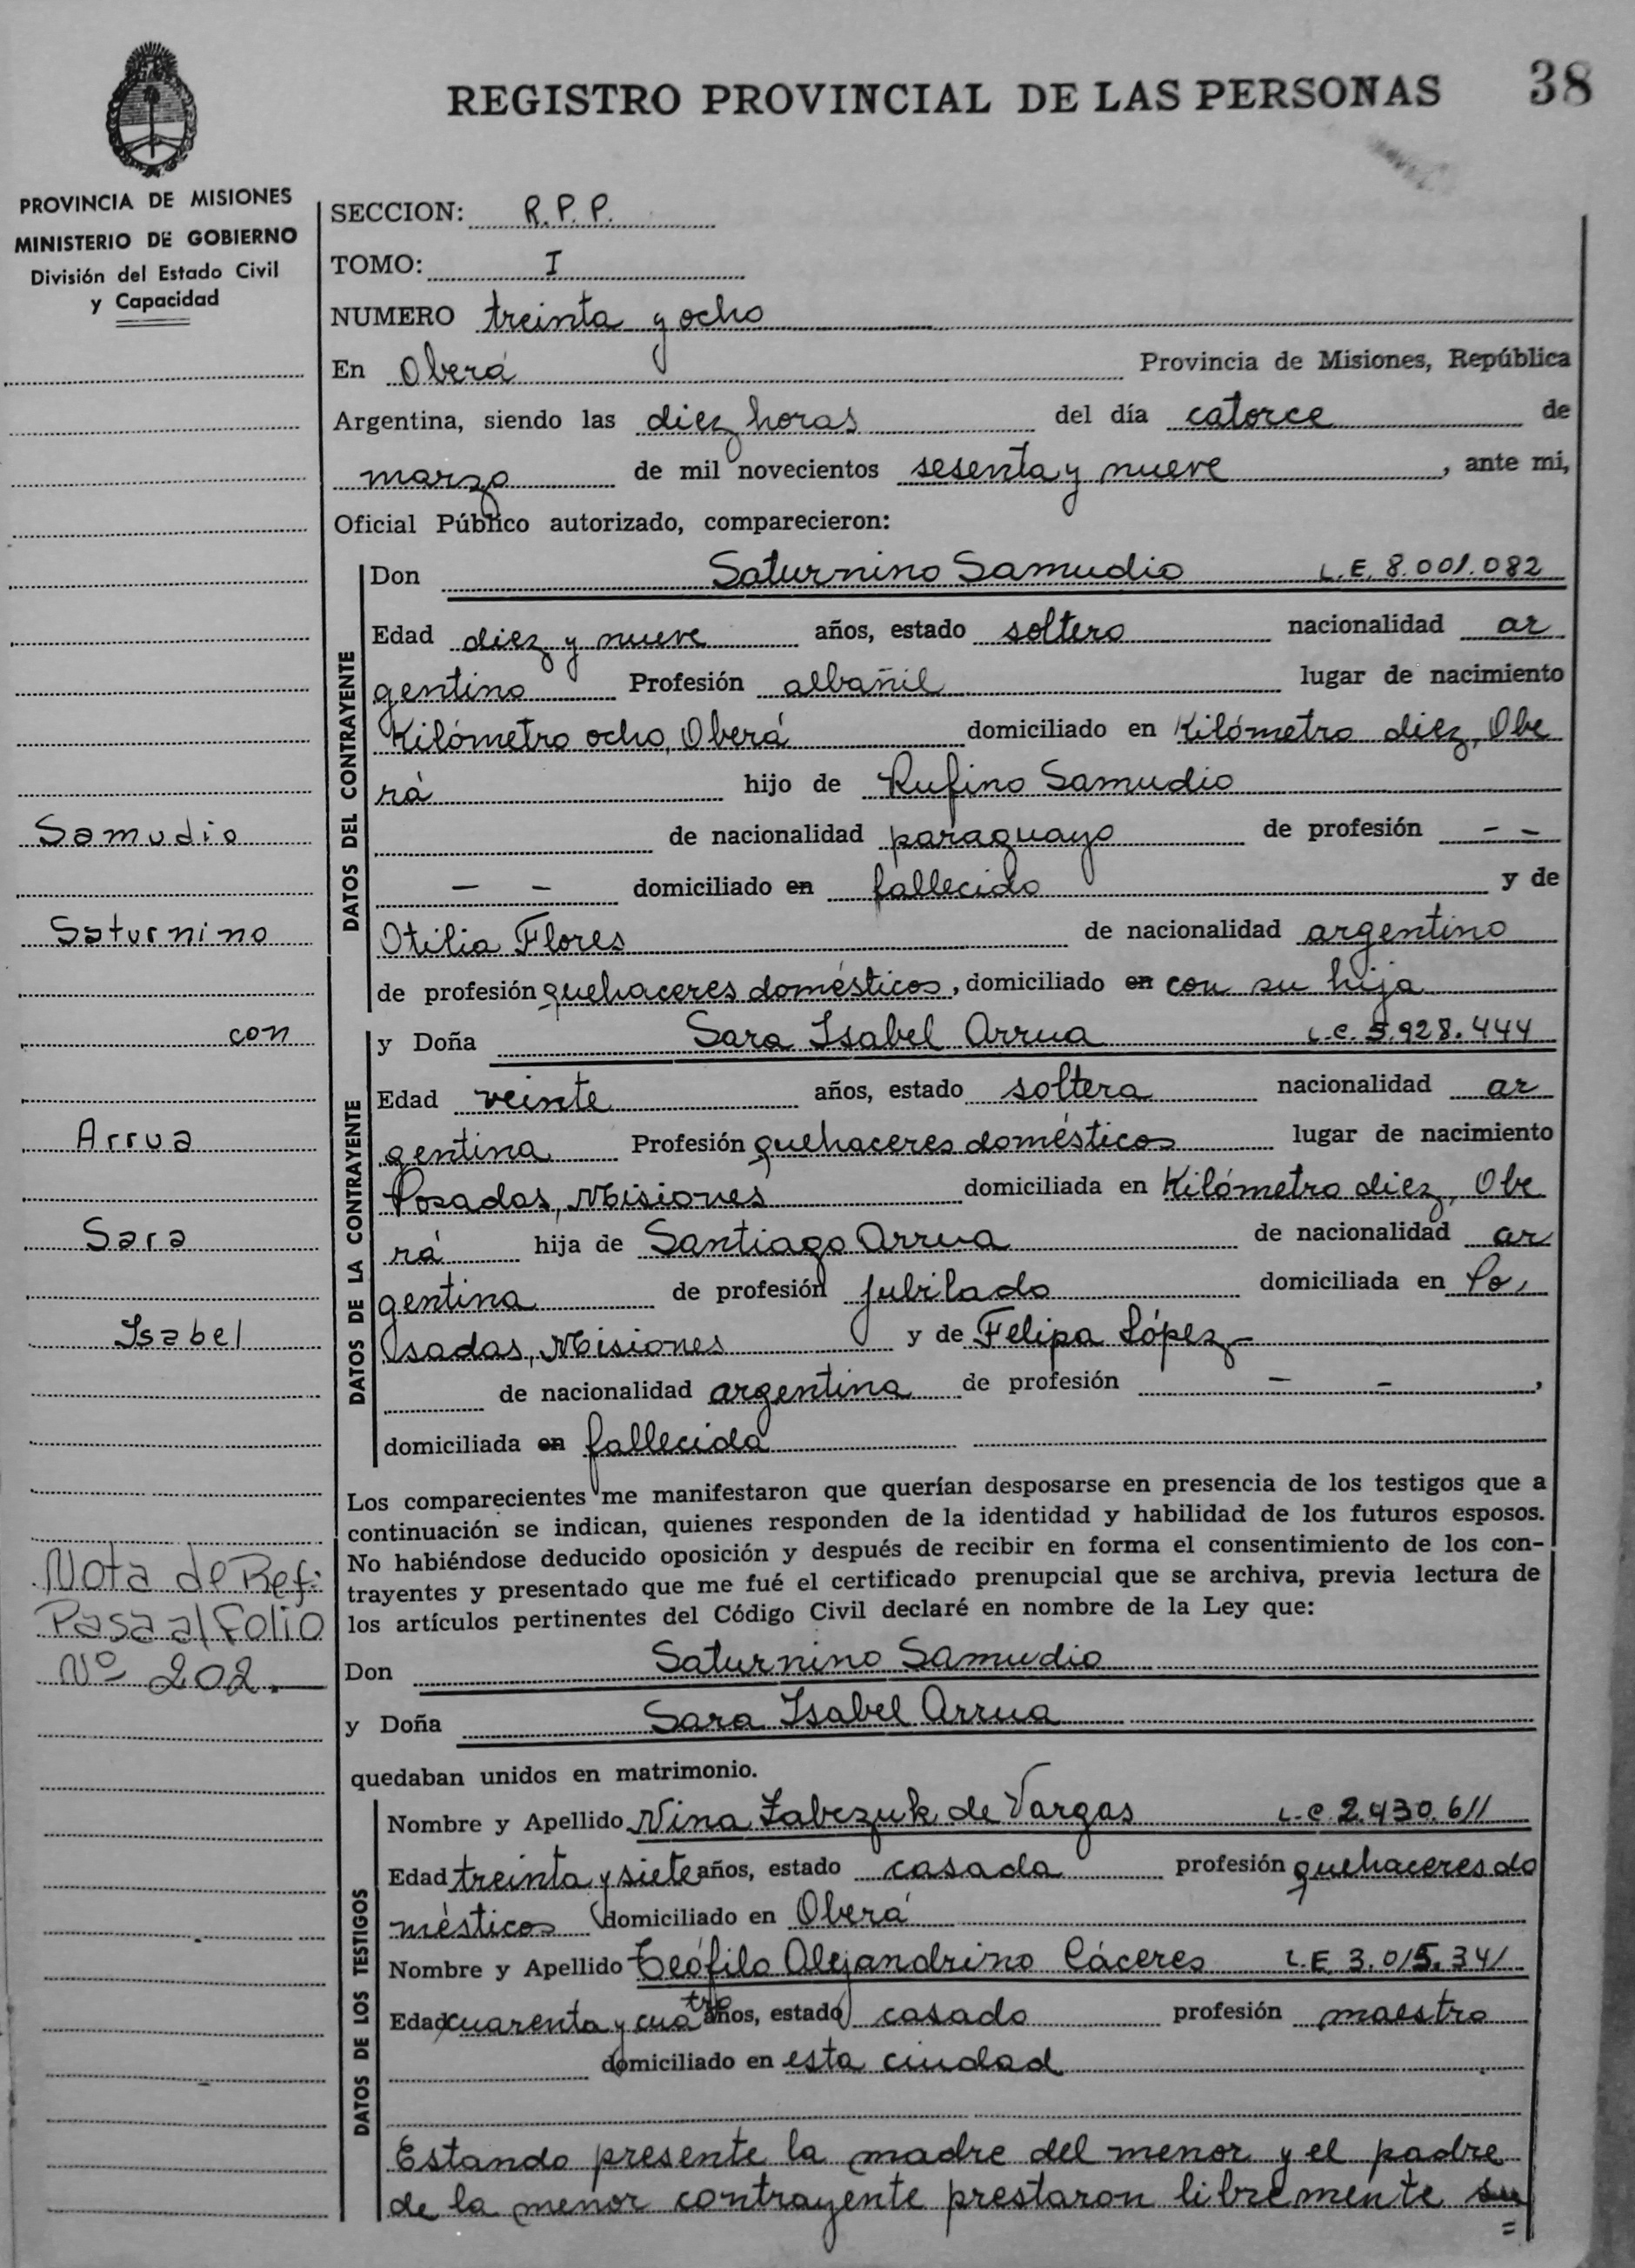 REGISTRO PROVINCIAL DE LAS PERSONAS 38
PROVINCIA DE MISIONES
MINISTERIO DE GOBIERNO
División del Estado Civil
y Capacidad
SECCION: R.P.P.
TOMO: I
NUMERO treinta y ocho
En Oberá Provincia de Misiones, República
Argentina, siendo las diez horas del día catorce de
marzo de mil novecientos sesenta y nueve, ante mi,
Oficial Público autorizado, comparecieron:
DATOS DEL CONTRAYENTE
Don Saturnino Samudio L.E. 8.001.082
Edad diez y nueve años, estado soltero nacionalidad ar
gentino Profesión albañil lugar de nacimiento
Kilómetro ocho, Oberá domiciliado en Kilómetro diez, Obe
rá hijo de Rufino Samudio
de nacionalidad paraguayo de profesión - -
- - domiciliado en fallecido y de
Otilia Flores de nacionalidad argentino
de profesión quehaceres domésticos, domiciliado en con su hija
DATOS DE LA CONTRAYENTE
y Doña Sara Isabel Arrua L.C. 5.928.444
Edad veinte años, estado soltera nacionalidad ar
gentina Profesión quehaceres domésticos lugar de nacimiento
Posadas, Misiones domiciliada en Kilómetro diez, Obe
rá hija de Santiago Arrua de nacionalidad ar
gentina de profesión jubilado domiciliada en Po,
sadas, Misiones y de Felipa López-
de nacionalidad argentina de profesión - -,
domiciliada en fallecida
Samudio
Saturnino
con
Arrua
Sara
Isabel
Nota de Ref:
Pasa al Folio
Nº 202.
Los comparecientes me manifestaron que querían desposarse en presencia de los testigos que a
continuación se indican, quienes responden de la identidad y habilidad de los futuros esposos.
No habiéndose deducido oposición y después de recibir en forma el consentimiento de los con-
trayentes y presentado que me fué el certificado prenupcial que se archiva, previa lectura de
los artículos pertinentes del Código Civil declaré en nombre de la Ley que:
Don Saturnino Samudio
y Doña Sara Isabel Arrua
quedaban unidos en matrimonio.
DATOS DE LOS TESTIGOS
Nombre y Apellido Nina Zabczuk de Vargas L.C. 2.430.611
Edad treinta y siete años, estado casada profesión quehaceres do
mésticos domiciliado en Oberá
Nombre y Apellido Teófilo Alejandrino Cáceres L.E. 3.015.341
Edad cuarenta y cuatro años, estado casado profesión maestro
domiciliado en esta ciudad
Estando presente la madre del menor y el padre
de la menor contrayente prestaron libremente su
=